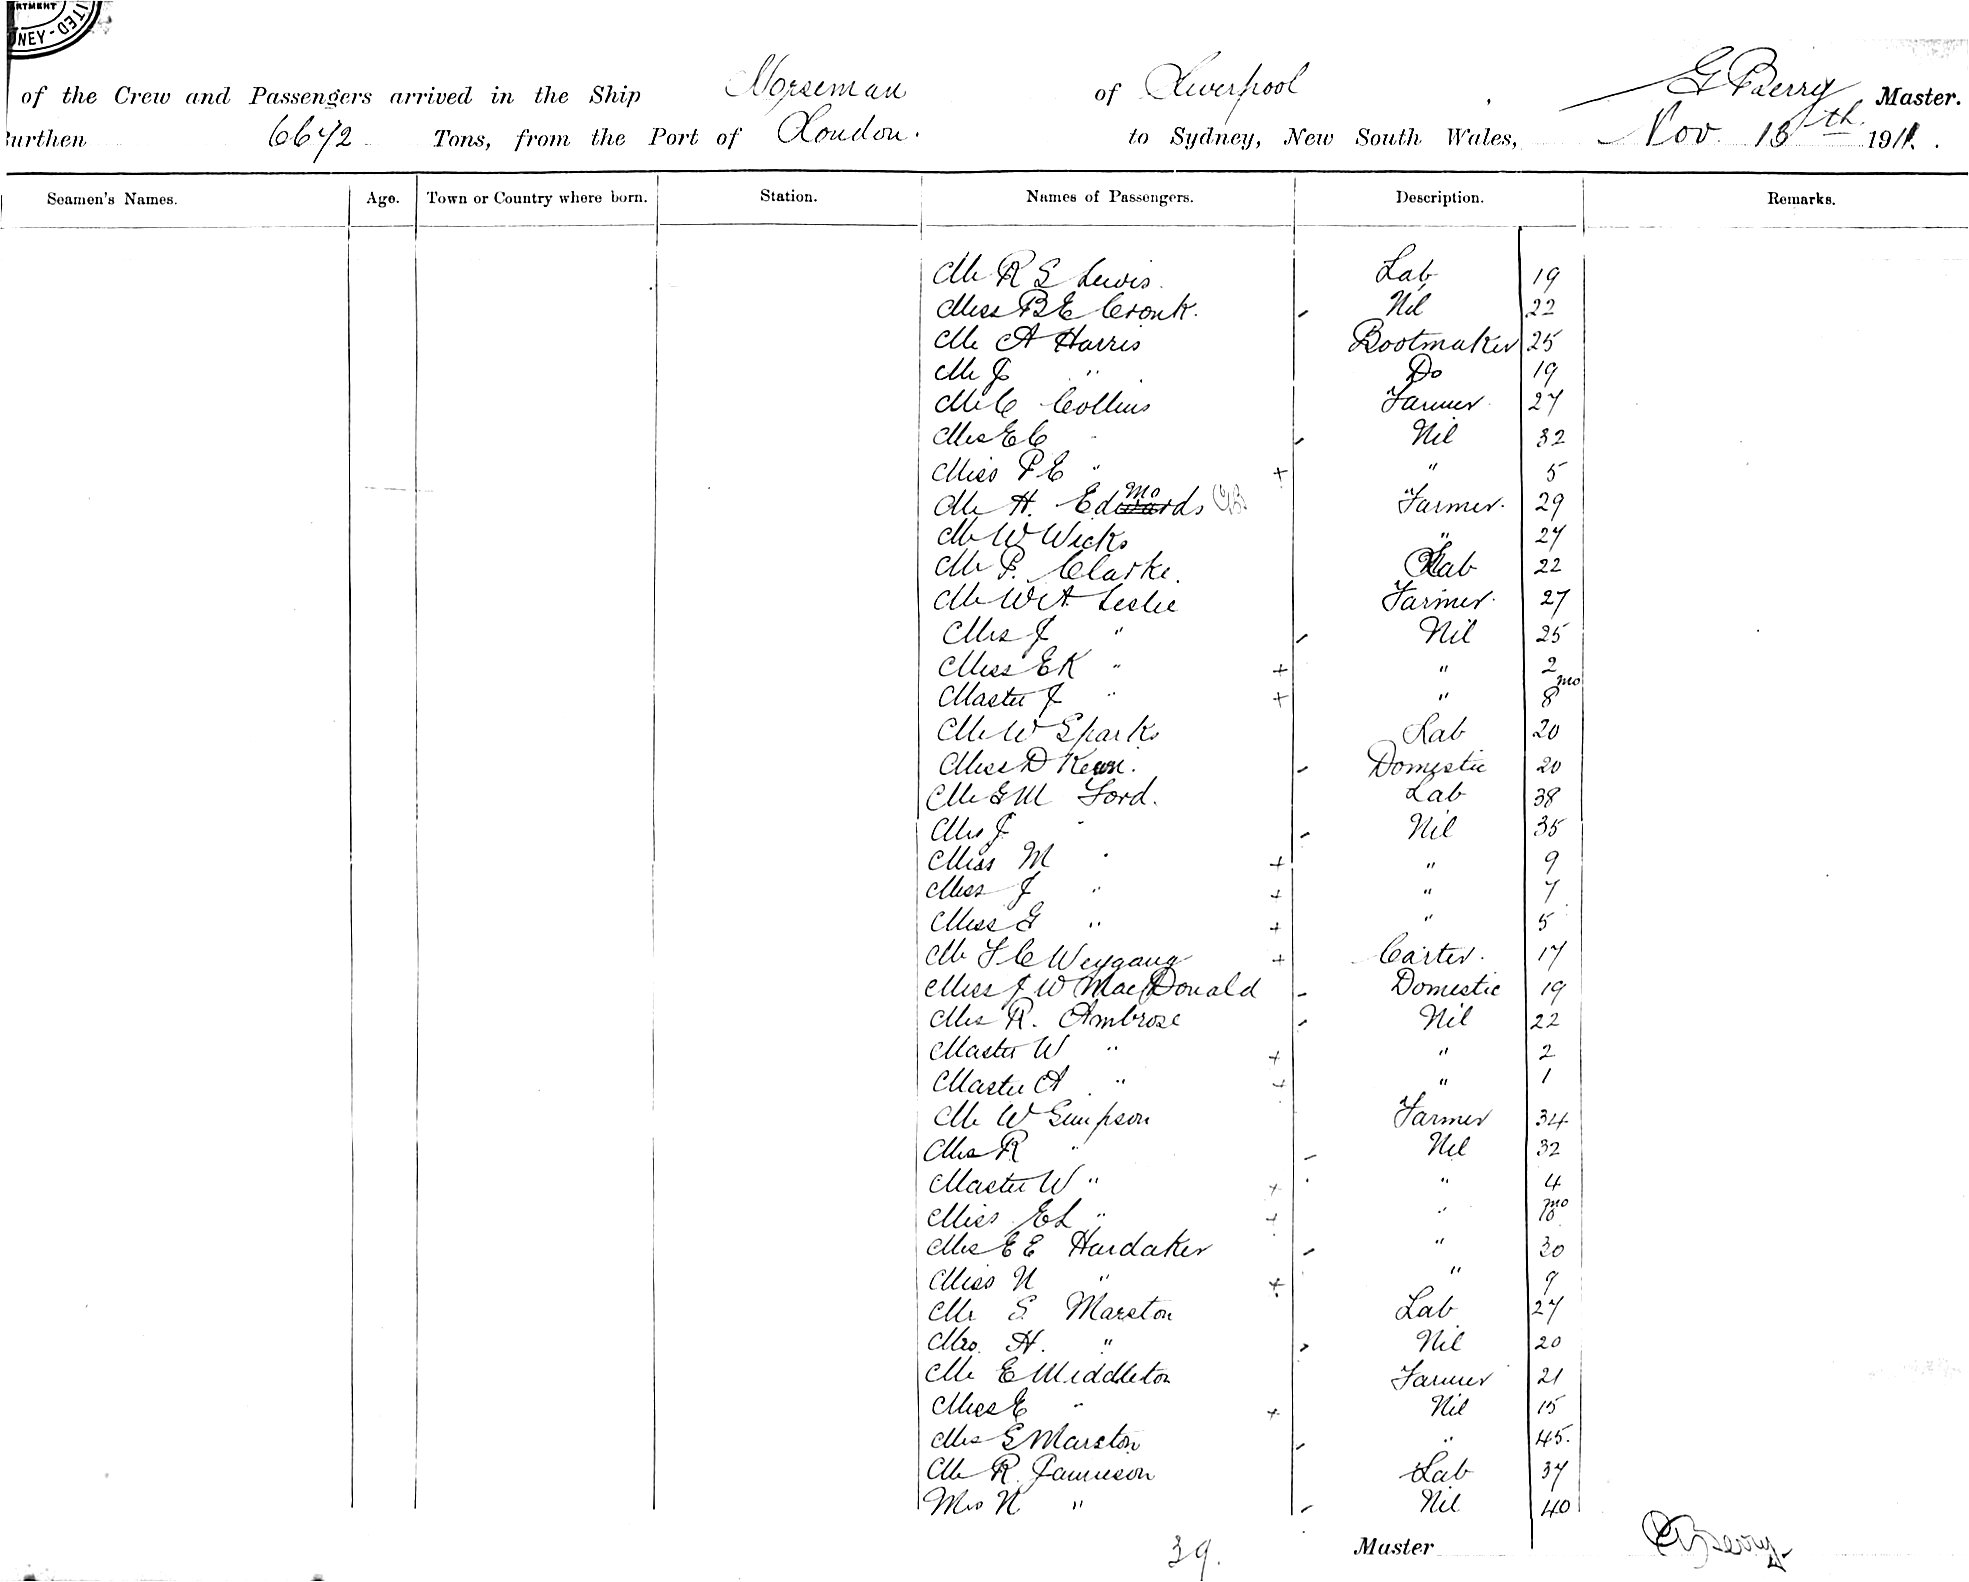 ARTMENT
NEY - ITED
of the Crew and Passengers arrived in the Ship Norseman of Liverpool, G Berry Master.
Burthen 6672 Tons, from the Port of London. to Sydney, New South Wales, Nov. 13th 1911.
Seamen's Names. Age. Town or Country where born. Station. Names of Passengers. Description. Remarks.
Mr R S Lewis. Lab 19
Miss B E Cronk. Nil 22
Mr A Harris Bootmaker 25
Mr J " Do 19
Mr C Collins Farmer 27
Mrs E C " Nil 32
Miss P E " + " 5
Mr H. Edmods Farmer. 29
Mr W Wicks " 27
Mr P. Clarke. Lab 22
Mr W A Leslie Farmer. 27
Mrs J " Nil 25
Miss E K " + " 2
Master J " + " 8 mo
Mr W Sparks Lab 20
Miss D Domestic 20
Mr G M Ford. Lab 38
Mrs J " Nil 35
Miss M " + " 9
Miss J " + " 7
Miss G " + " 5
Mr F C Weygang + Carter. 17
Miss J W MacDonald Domestic 19
Mrs R. Ambrose Nil 22
Master W " + " 2
Master A " + " 1
Mr W Simpson Farmer 34
Mrs R " Nil 32
Master W " + " 4
Miss E L " + " mo
Mrs E E Hardaker " 30
Miss N " + " 9
Mr S Marston Lab 27
Mrs. H. " Nil 20
Mr E Middleton Farmer 21
Miss E " + Nil 15
Mrs S Marston " 45.
Mr R. Jamieson Lab 37
Mrs N " Nil 40
39. Master G Berry